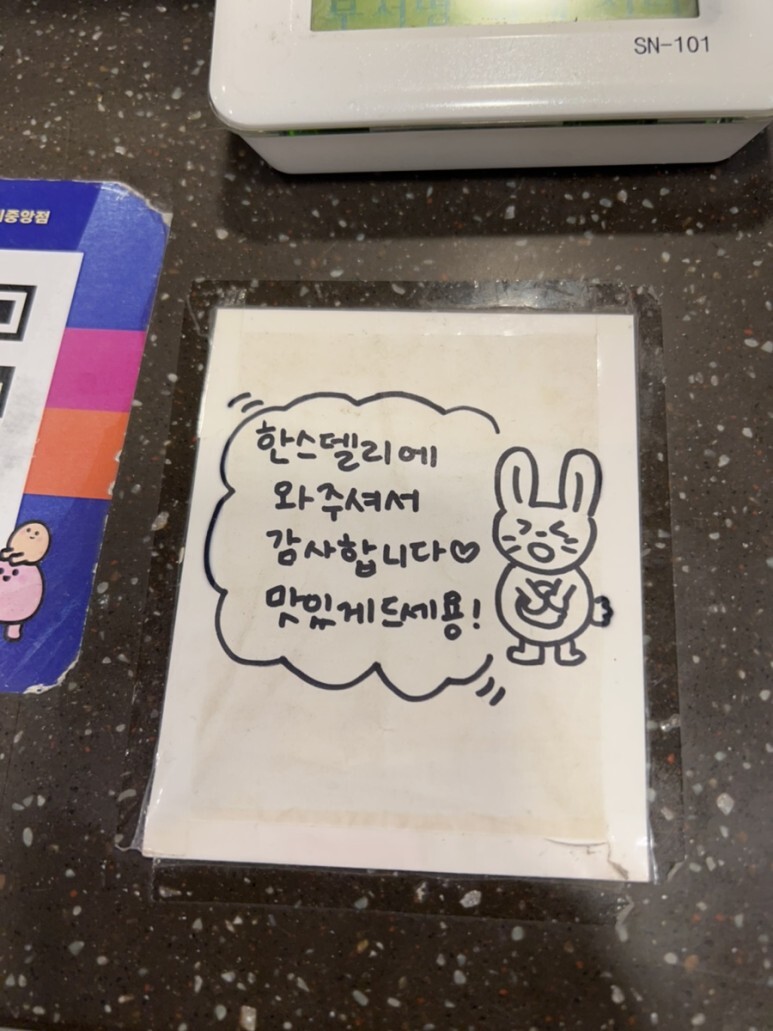 SN-101
중앙점
한스델리에
와주셔서
감사합니다♡
맛있게드세용!